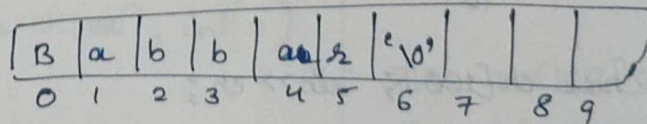 B a b b a r '\0'
0 1 2 3 4 5 6 7 8 9